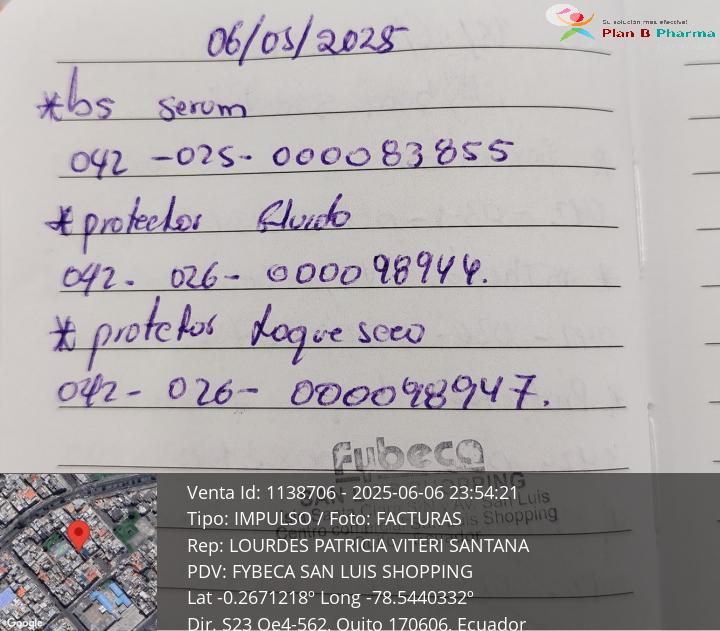 Su solución más efectiva!
Plan B Pharma
06/05/2025
*bs serum
042 -025- 000083855
*protector fluido
042- 026- 000098944.
* protetor toque seco
042- 026- 000098947.
fybeca
SHOPPING
Av. San Luis
Shopping
Centro comercial San Luis Shopping
Venta Id: 1138706 - 2025-06-06 23:54:21
Tipo: IMPULSO / Foto: FACTURAS
Rep: LOURDES PATRICIA VITERI SANTANA
PDV: FYBECA SAN LUIS SHOPPING
Lat -0.2671218º Long -78.5440332º
Dir. S23 Oe4-562, Quito 170606, Ecuador
Google